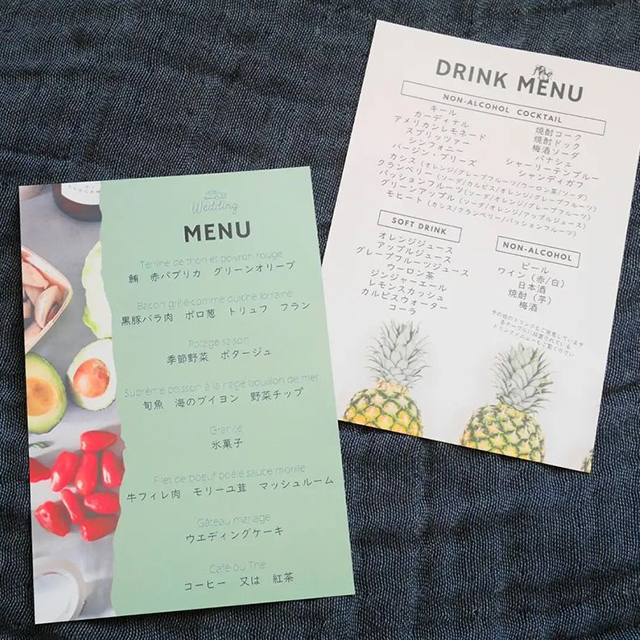 Wedding
MENU
Terrine de thon et poivron rouge
鮪　赤パプリカ　グリーンオリーブ
Bacon grillé comme quiche lorraine
黒豚バラ肉　ポロ葱　トリュフ　フラン
Potage saison
季節野菜　ポタージュ
Suprême poisson à la nage bouillon de mer
旬魚　海のブイヨン　野菜チップ
Granité
氷菓子
Filet de boeuf poêlé sauce morille
牛フィレ肉　モリーユ茸　マッシュルーム
Gâteau mariage
ウエディングケーキ
Café ou Thé
コーヒー　又は　紅茶
DRINK MENU
NON-ALCOHOL COCKTAIL
キール
カーディナル
アメリカンレモネード
スプリッツァー
シンフォニー
バージン・ブリーズ
焼酎コーク
焼酎ドック
梅酒ソーダ
パナシェ
シャーリーテンプル
シャンディガフ
カシス（オレンジ/グレープフルーツ/ウーロン茶/ソーダ）
クランベリー
パッションフルーツ
グリーンアップル
モヒート（カシス/クランベリー/パッションフルーツ）
SOFT DRINK
オレンジジュース
アップルジュース
グレープフルーツジュース
ウーロン茶
ジンジャーエール
レモンスカッシュ
カルピスウォーター
コーラ
NON-ALCOHOL
ビール
ワイン（赤/白）
日本酒
焼酎（芋）
梅酒